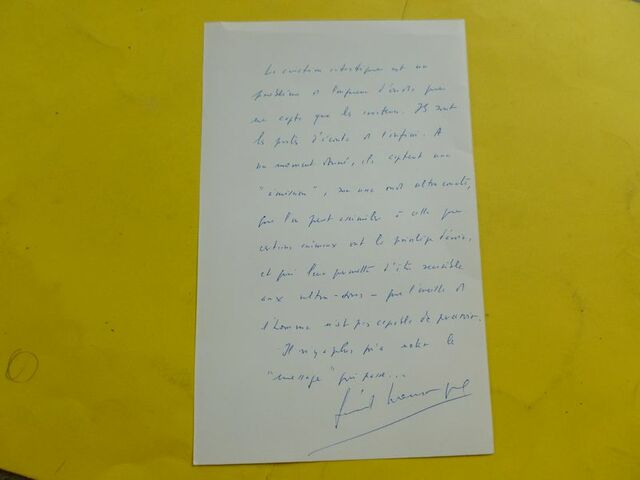 La création artistique est un
problème de longueur d'onde que
ne capte que les créateurs. Ils sont
les postes d'écoute de l'infini. A
un moment donné, ils captent une
"émission", sur une onde ultra courte,
que l'on peut assimiler à celle que
certains animaux ont le privilège d'avoir,
et qui leur permette d'être sensible
aux ultra-sons - que l'oreille de
l'homme n'est pas capable de percevoir.
Il n'y a plus qu'à noter le
"message" qui passe...